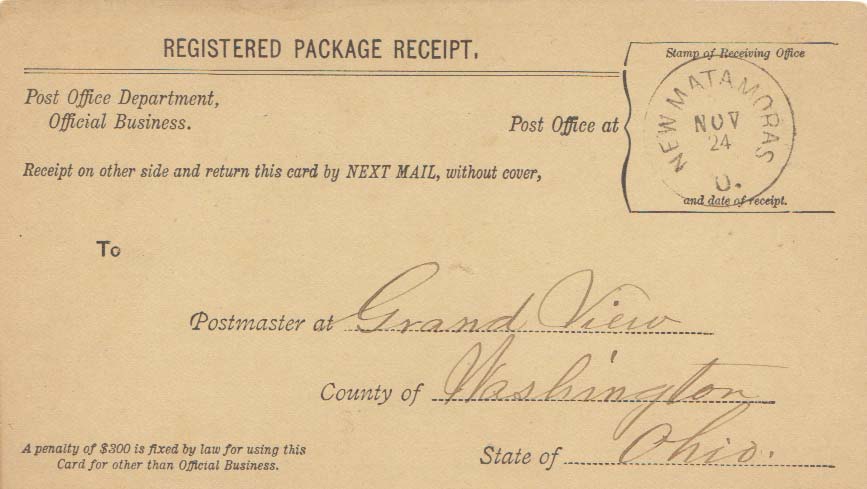 REGISTERED PACKAGE RECEIPT.
Stamp of Receiving Office
Post Office Department,
Official Business.
Post Office at
NEW MATAMORAS
NOV
24
O.
Receipt on other side and return this card by NEXT MAIL, without cover,
and date of receipt.
To
Postmaster at Grand View
County of Washington
A penalty of $300 is fixed by law for using this
Card for other than Official Business.
State of Ohio.